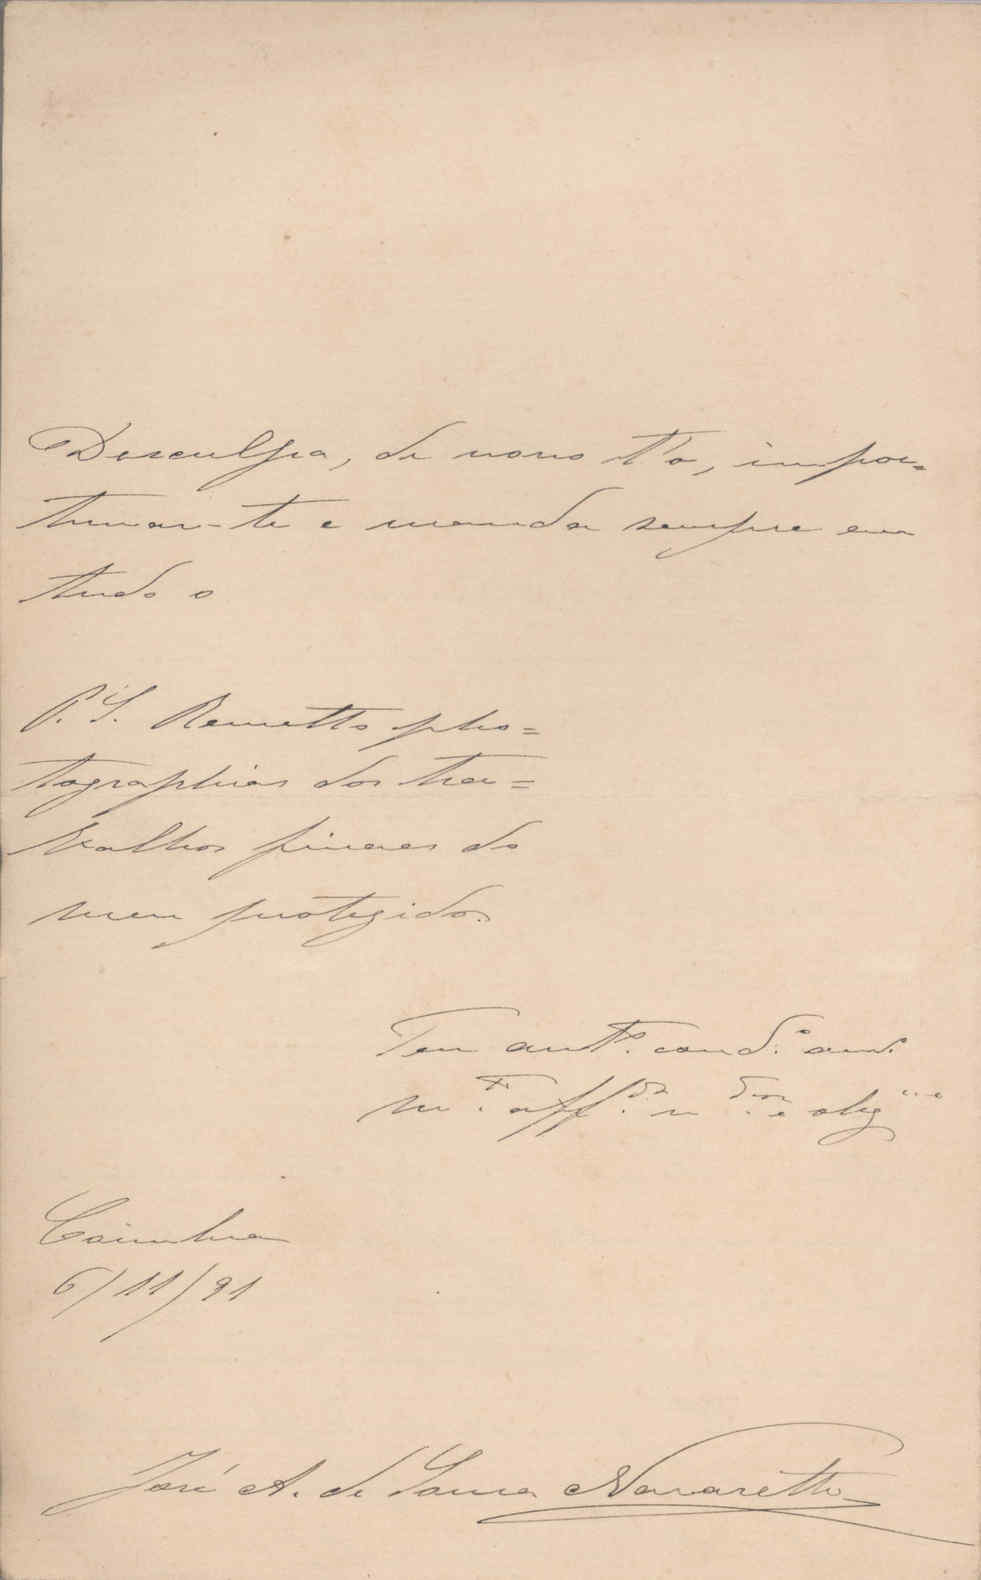 Desculpa, de novo t'o, impor=
tunar-te e manda sempre em
tudo o
P. S. Remetto pho=
tographias dos tra=
balhos finaes do
meu protegido.
Teu ant.º cond.º am.º
m.to aff.do e obg.mo
Coimbra
6/11/91
José A. de Sousa Nazareth